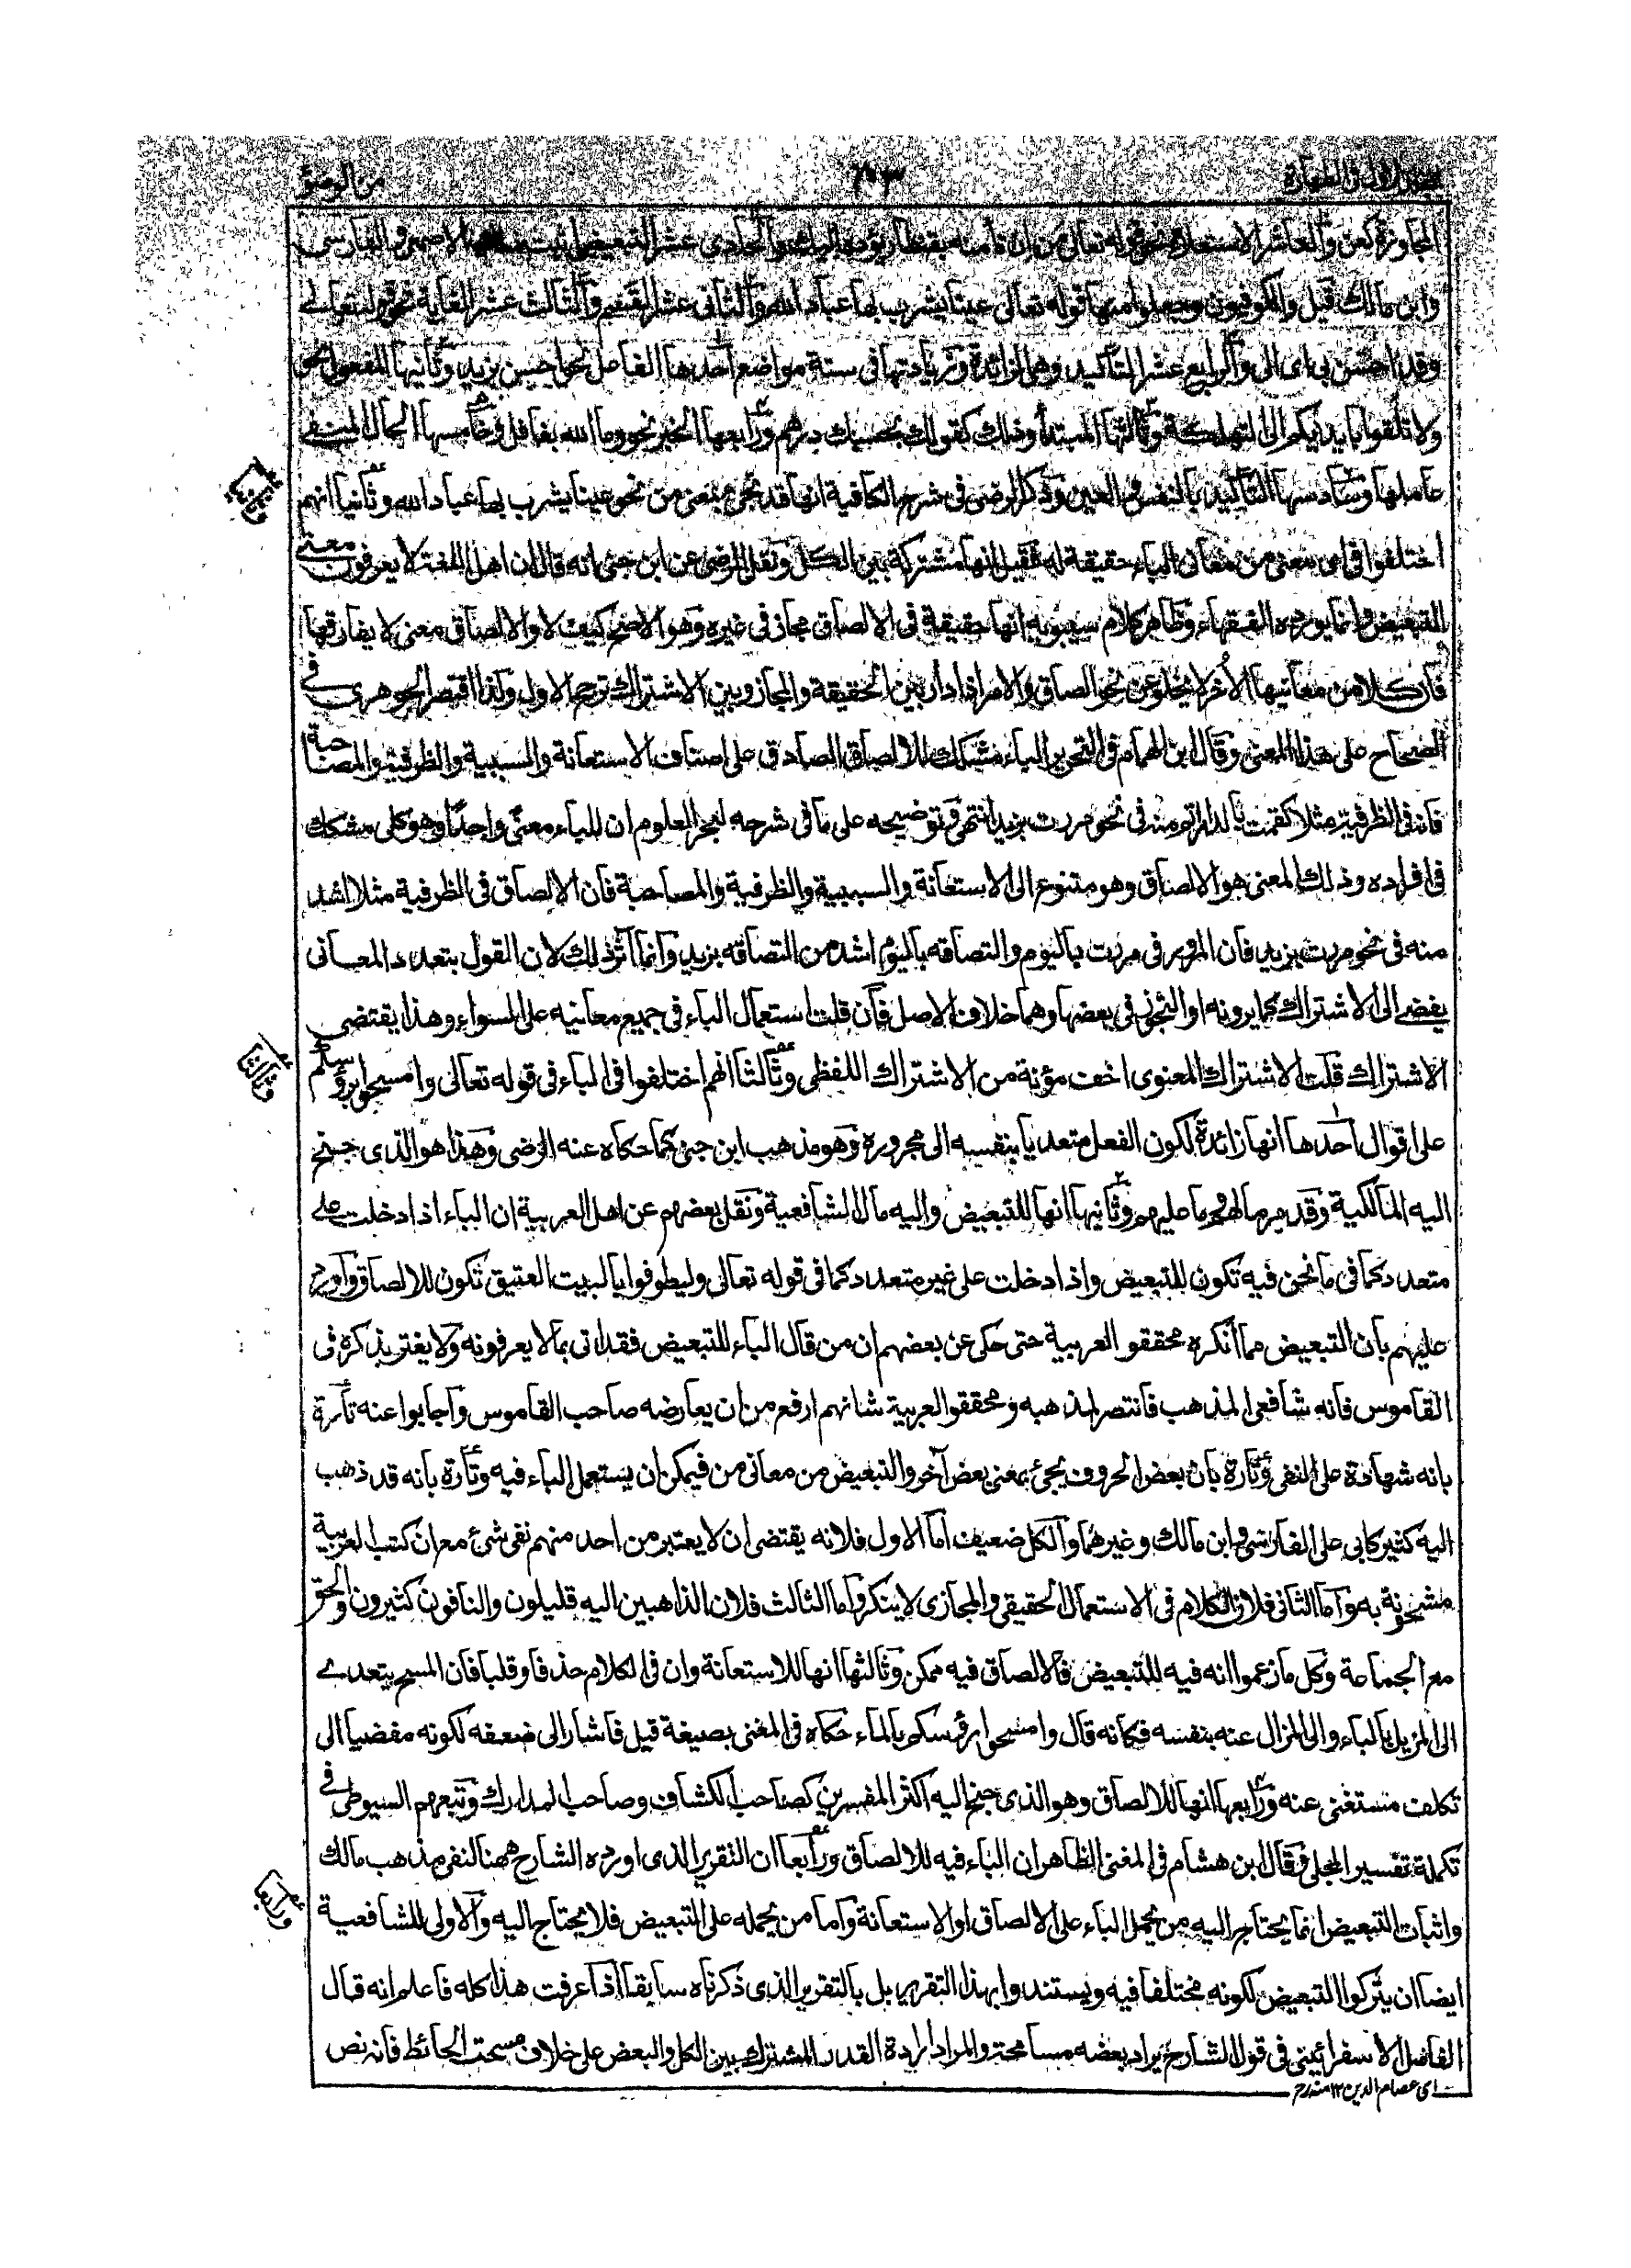 من الوضوء
المجاوزة كعن والعاشر الاستعلاء نحو قوله تعالى من ان تأمنه بقنطار يؤده اليك والحادي عشر التبعيض اثبت الاصمعي والفارسي
وابن مالك قيل والكوفيون وجعلوا منها قوله تعالى عينا يشرب بها عباد الله والثاني عشر القسم والثالث عشر الغاية نحو قوله تعالى
وقد احسن بي اى الى والرابع عشر التاكيد وهي الزائدة وزيادتها في ستة مواضع احدها الفاعل نحو احسن بزيد وثانيها المفعول نحو
ولا تلقوا بايديكم الى التهلكة وثالثها المبتدأ وذلك كقولك بحسبك درهم ورابعها الخبر نحو وما الله بغافل وخامسها الحال المنفي
عاملها وسادسها التاكيد بالنفس والعين وذكر الرضى في شرح الكافية انها قد تجئ بمعنى من نحو عينا يشرب بها عباد الله وثانيا انهم
اختلفوا في اى معنى من معاني الباء حقيقة له فقيل انها مشتركة بين الكل ونقل الرضى عن ابن جنى انه قال ان اهل اللغة لا يعرفون معنى
التبعيض وانما يورده الفقهاء وظاهر كلام سيبويه انها حقيقة في الالصاق مجاز في غيره وهو الاصح كيف لا والالصاق معنى لا يفارقها
فان كلا من معانيها الأخر لا يخلو عن نحو الصاق والامر اذا دار بين الحقيقة والمجاز وبين الاشتراك ترجح الاول ولذا اقتصر الجوهرى في
الصحاح على هذا المعنى وقال ابن الهمام في التحرير الباء مشكك للالصاق الصادق على اصناف الاستعانة والسببية والظرفية والمصاحبة
فانه في الظرفية مثلا كقمت بالدار اتم منه في نحو مررت بزيد انتهى وتوضيحه على ما في شرحه لبحر العلوم ان للباء معنى واحدا وهو كلى مشكك
في افراده وذلك المعنى هو الالصاق وهو متنوع الى الاستعانة والسببية والظرفية والمصاحبة فان الالصاق في الظرفية مثلا اشد
منه في نحو مررت بزيد فان المرور في مررت باليوم والتصاقه باليوم اشد من التصاقه بزيد وانما آثر ذلك لان القول بتعدد المعانى
يفضى الى الاشتراك كما يرونه او التجوز في بعضها وهما خلاف الاصل فان قلت استعمال الباء في جميع معانيه على السواء وهذا يقتضى
الاشتراك قلت الاشتراك المعنوى اخف مؤنة من الاشتراك اللفظى وثالثا انهم اختلفوا في الباء في قوله تعالى وامسحوا برؤسكم
على اقوال احدها انها زائدة لكون الفعل متعديا بنفسه الى مجروره وهو مذهب ابن جنى كما حكاه عنه الرضى وهذا هو الذى جنح
اليه المالكية وقد مر ما لهم وما عليهم وثانيها انها للتبعيض واليه مال الشافعية ونقل بعضهم عن اهل العربية ان الباء اذا دخلت على
متعدد كما في ما نحن فيه تكون للتبعيض واذا دخلت على غير متعدد كما في قوله تعالى وليطوفوا بالبيت العتيق تكون للالصاق واورد
عليهم بان التبعيض مما أنكره محققو العربية حتى حكى عن بعضهم ان من قال الباء للتبعيض فقد اتى بما لا يعرفونه ولا يغتر بذكره في
القاموس فانه شافعى المذهب فانتصر لمذهبه ومحققو العربية شانهم ارفع من ان يعارضه صاحب القاموس وأجابوا عنه تارة
بانه شهادة على النفى وتارة بان بعض الحروف يجئ بمعنى بعض آخر والتبعيض من معانى من فيمكن ان يستعمل الباء فيه وتارة بانه قد ذهب
اليه كثير كابى على الفارسى وابن مالك وغيرهما والكل ضعيف اما الاول فلانه يقتضى ان لا يعتبر من احد منهم نفى شئ مع ان كتب العربية
مشحونة به واما الثانى فلان الكلام في الاستعمال الحقيقى والمجازى لا ينكر واما الثالث فلان الذاهبين اليه قليلون والنافون كثيرون والحق
مع الجماعة وكل ما زعموا انه فيه للتبعيض فالالصاق فيه ممكن وثالثها انها للاستعانة وان في الكلام حذفا وقلبا فان المسح يتعدى
الى المزيل بالباء والى المزال عنه بنفسه فكانه قال وامسحوا برؤسكم بالماء حكاه في المغنى بصيغة قيل فاشار الى ضعفه لكونه مفضيا الى
تكلف مستغنى عنه ورابعها انها للالصاق وهو الذى جنح اليه اكثر المفسرين كصاحب الكشاف وصاحب المدارك وتبعهم السيوطى في
تكملة تفسير المحلى وقال ابن هشام في المغنى الظاهر ان الباء فيه للالصاق ورابعا ان التقرير الذى اورده الشارح ههنا لنفى مذهب مالك
واثبات التبعيض انما يحتاج اليه من يحمل الباء على الالصاق او الاستعانة واما من يحمله على التبعيض فلا يحتاج اليه والاولى للشافعية
ايضا ان يتركوا التبعيض لكونه مختلفا فيه ويستندوا بهذا التقرير بل بالتقرير الذى ذكرناه سابقا اذا عرفت هذا كله فاعلم انه قال
الفاضل الاسفرائينى في قول الشارح يراد بعضه مسامحة والمراد ارادة القدر المشترك بين الكل والبعض على خلاف مسحت الحائط فانه نص
اى عصام الدين ١٢ منه رح